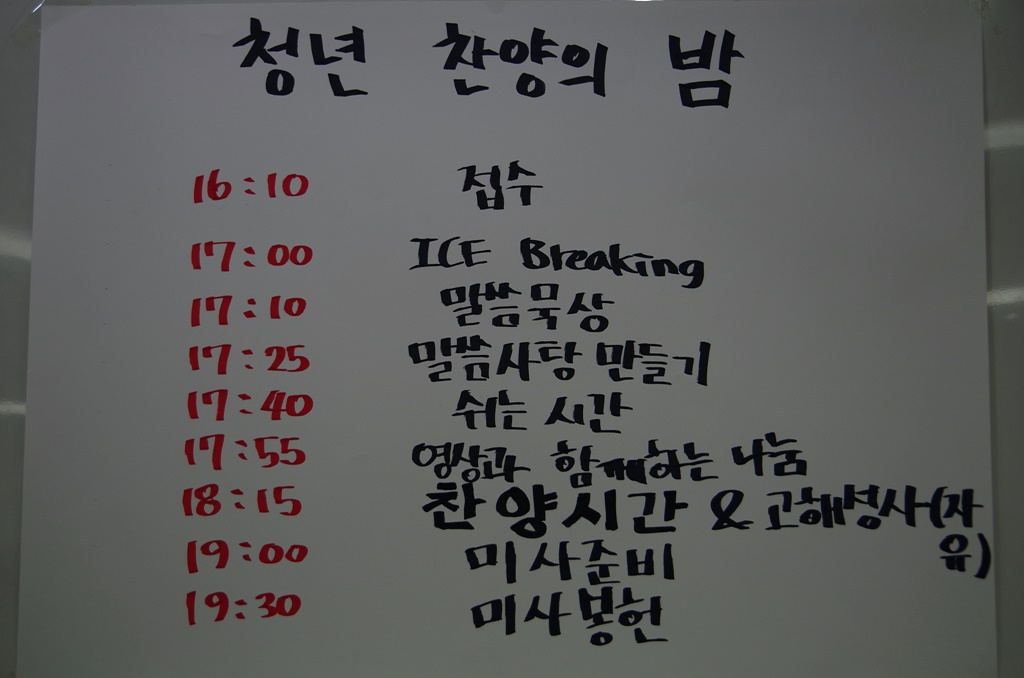 청년 찬양의 밤
16:10 접수
17:00 ICE Breaking
17:10 말씀묵상
17:25 말씀사탕 만들기
17:40 쉬는 시간
17:55 영상과 함께하는 나눔
18:15 찬양시간 & 고해성사(자
유)
19:00 미사준비
19:30 미사봉헌